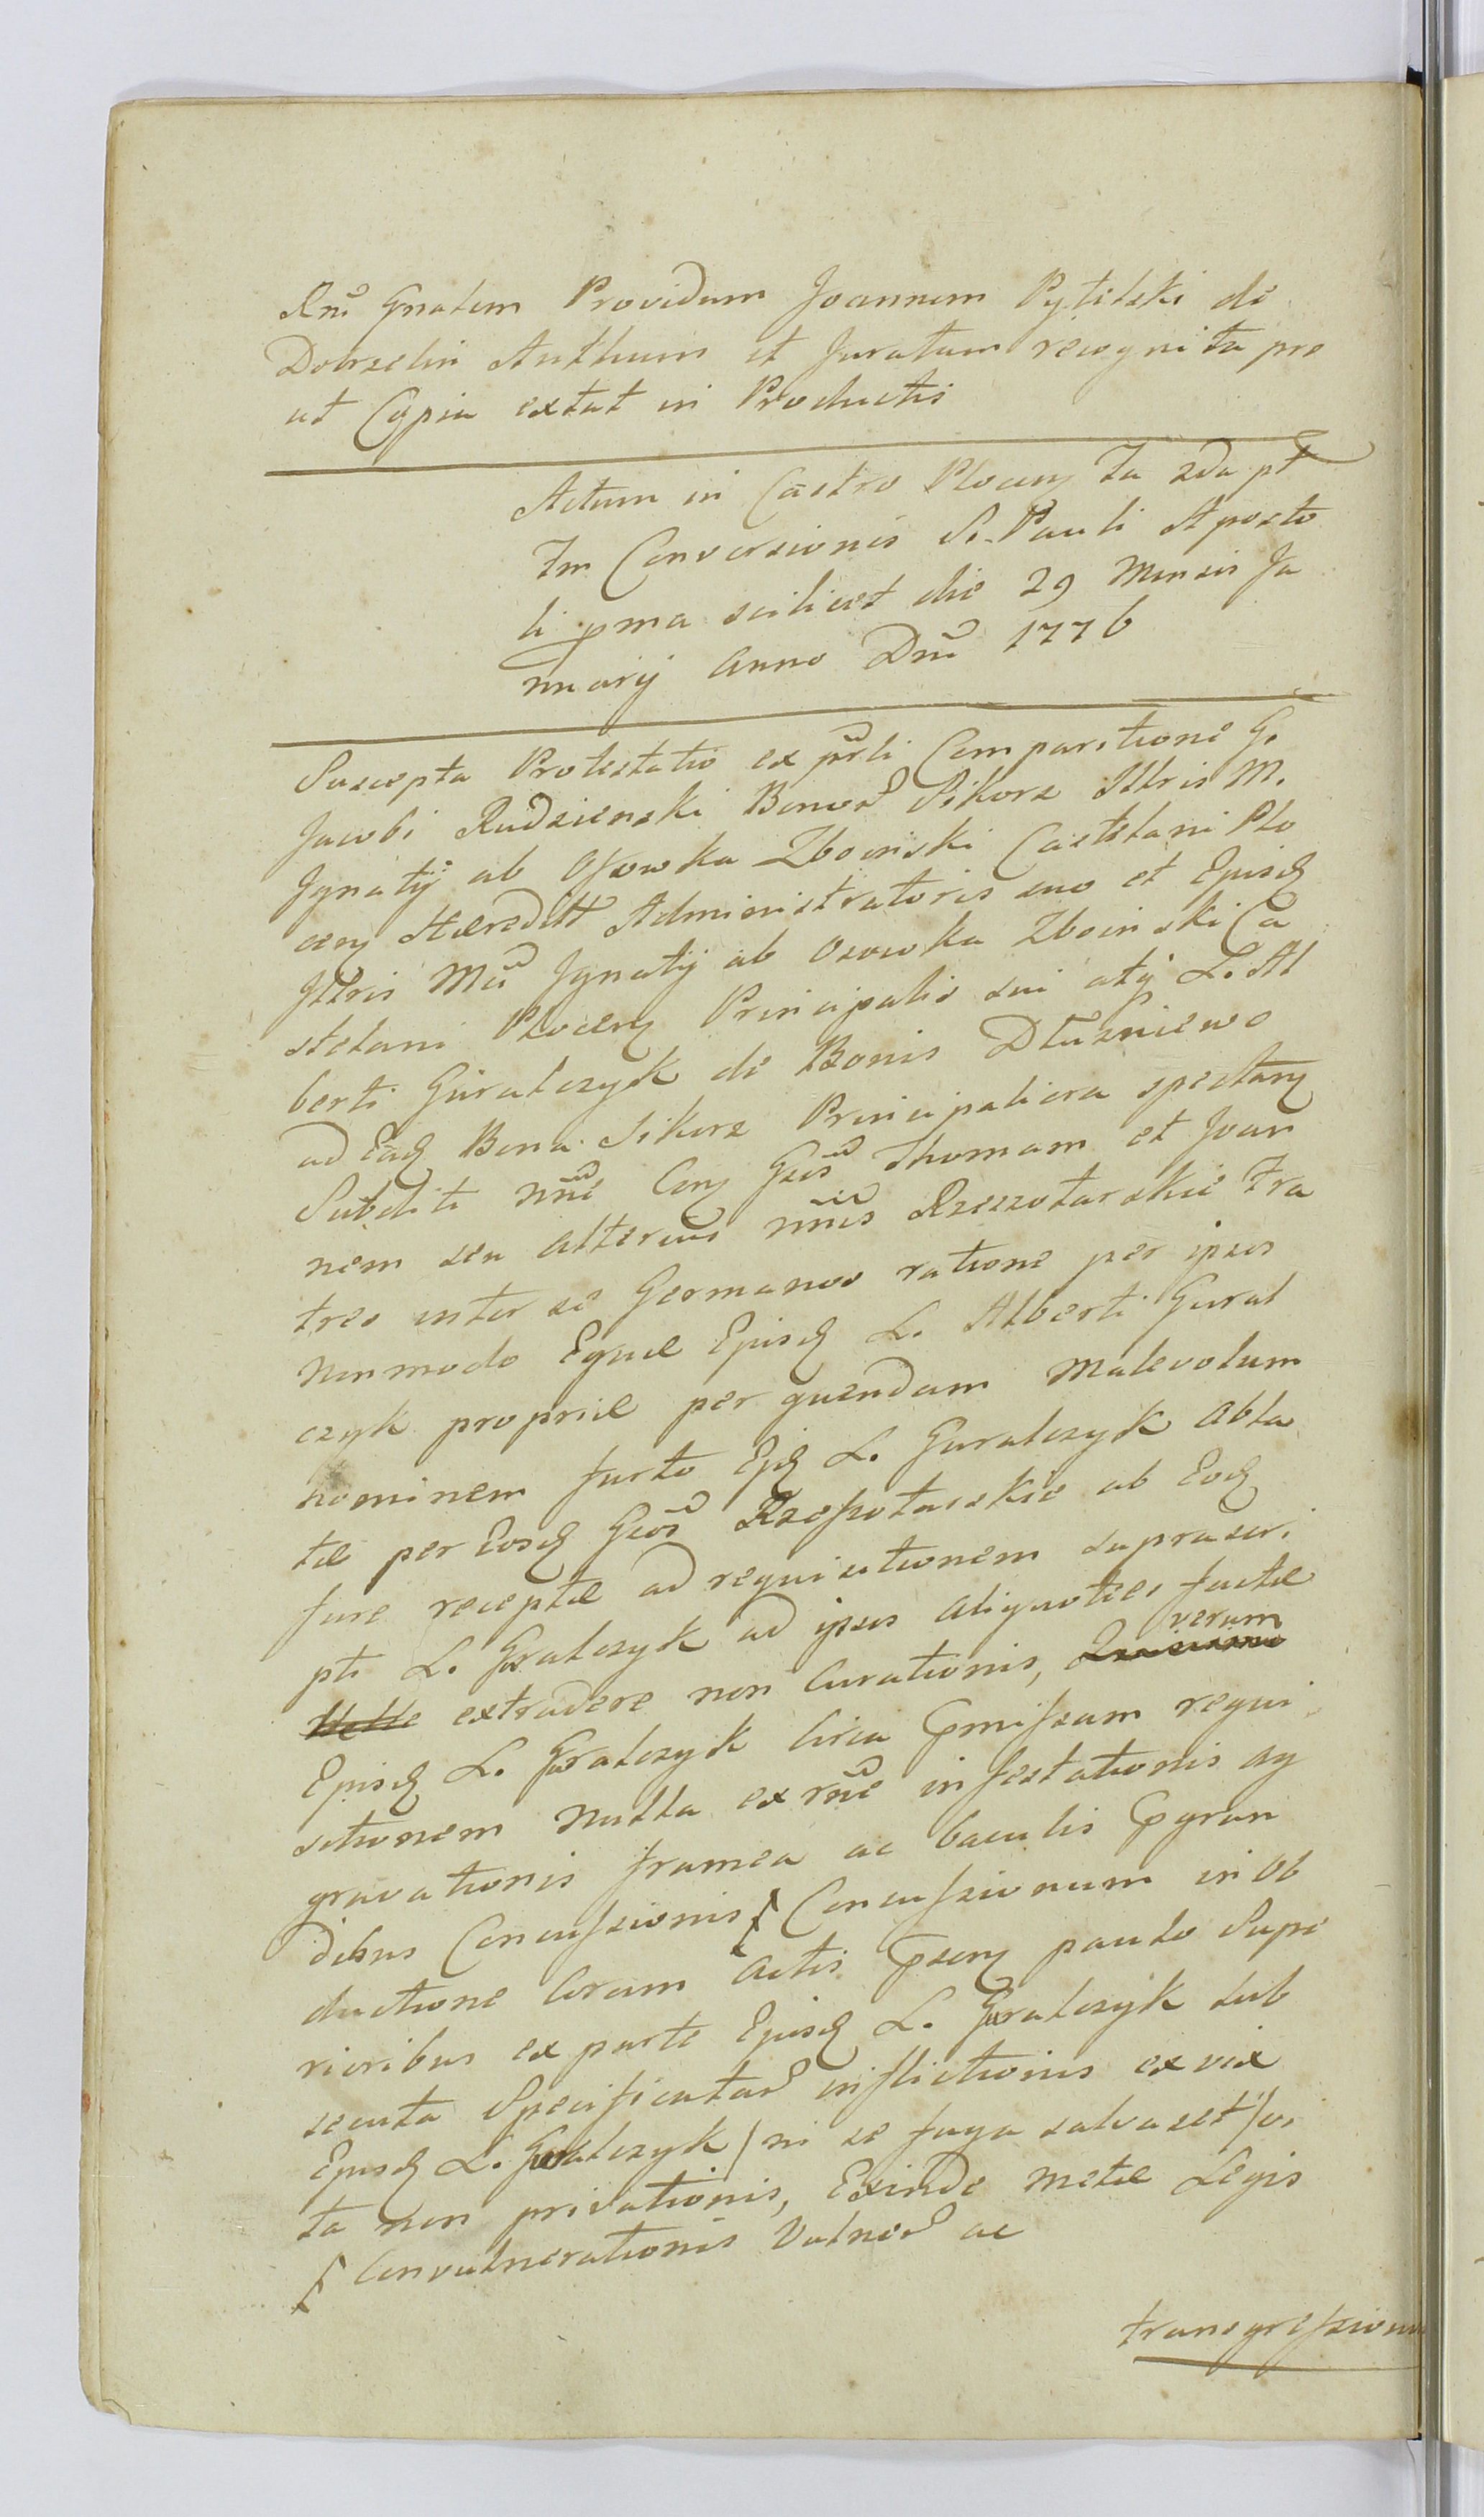 Rnũ Gnalem Providum Joannem Pytelski de
Dobrzelin Authum et Juratum recognita pro
ut Copia extat in Productis
Actum in Castro Plocen Fa 2da pt
Fm Conversionis S. Pauli Aposto
li pma scilicet die 29 Mensis Ja
nuarij Anno Dnĩ 1776
Suscepta Protestatio ex prli Comparitione G.
Jacobi Rudzienski Bonor Sikorz Illris M.
Ignatij ab Ossowka Zboinski Castelani Plo
cen Haeredit Administratoris suo et Ejusd
Illris Mci Ignatij ab Osowka Zboinski Ca
stelani Plocen Principalis sui atq L. Al
berti Guralczyk de Bonis Dłuzniewo
ad Ead Bona Sikorz Principaliora spectan
Subditi nne Con Gsos Thomam et Joan
nem seu alterius nnis Rzeszotarskie Fra
tres inter se Germanos ratione per ipsos
Nonmodo Equae Ejusd L. Alberti Gural
czyk propriae per quendam Malevolum
hominem furto Ejd L. Guralczyk abla
tae per Eosd Gsos Rzeszotarskie ab Eod
fure receptae ad requisitionem suprascri
pti L. Guralczyk ad ipsos aliquoties factae
extradere non Curationis, verum
Ejusd L. Guralczyk Circa pmissam requi
sitionem Nulla ex rne infestationis ag
gravationis framea ac baculis pgran
dibus Concussionis Concussionum in Ob
ductione Coram Actis psen paulo Supe
rioribus ex parte Ejusd L. Guralczyk sub
secuta Specificatar inflictionis ex vix
Ejusd L. Guralczyk / ni se fuga salvaset / vi
ta non privationis, Exinde Metae Legis
Convulnerationis Vulner ac
transgressionis